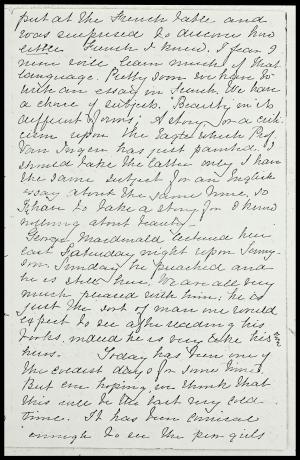 put at the French table and
was surprised to discover how
little French I knew. I fear I
never will learn much of that
language. Pretty soon we have to
write an essay in French. We have
a choice of subjects. Beauty in its
different forms; A story; or a crit-
icism upon the Sagte which Prof.
Van Ingen has just painted. I
should take the latter only I have
the same subject for an English
essay about the same time, so
I have to take a story for I know
nothing about beauty.
George Macdonald lectured here
last Saturday night upon Tenny-
son. Sunday he preached and
he is still here. We are all very
much pleased with him; he is
just the sort of man one would
expect to see after reading his
books, indeed he is very like his
heros. Today has been one of
the coldest days for some time.
But I'm hoping we think that
this will be the last very cold
time. It has been comical
enough to see the poor girls